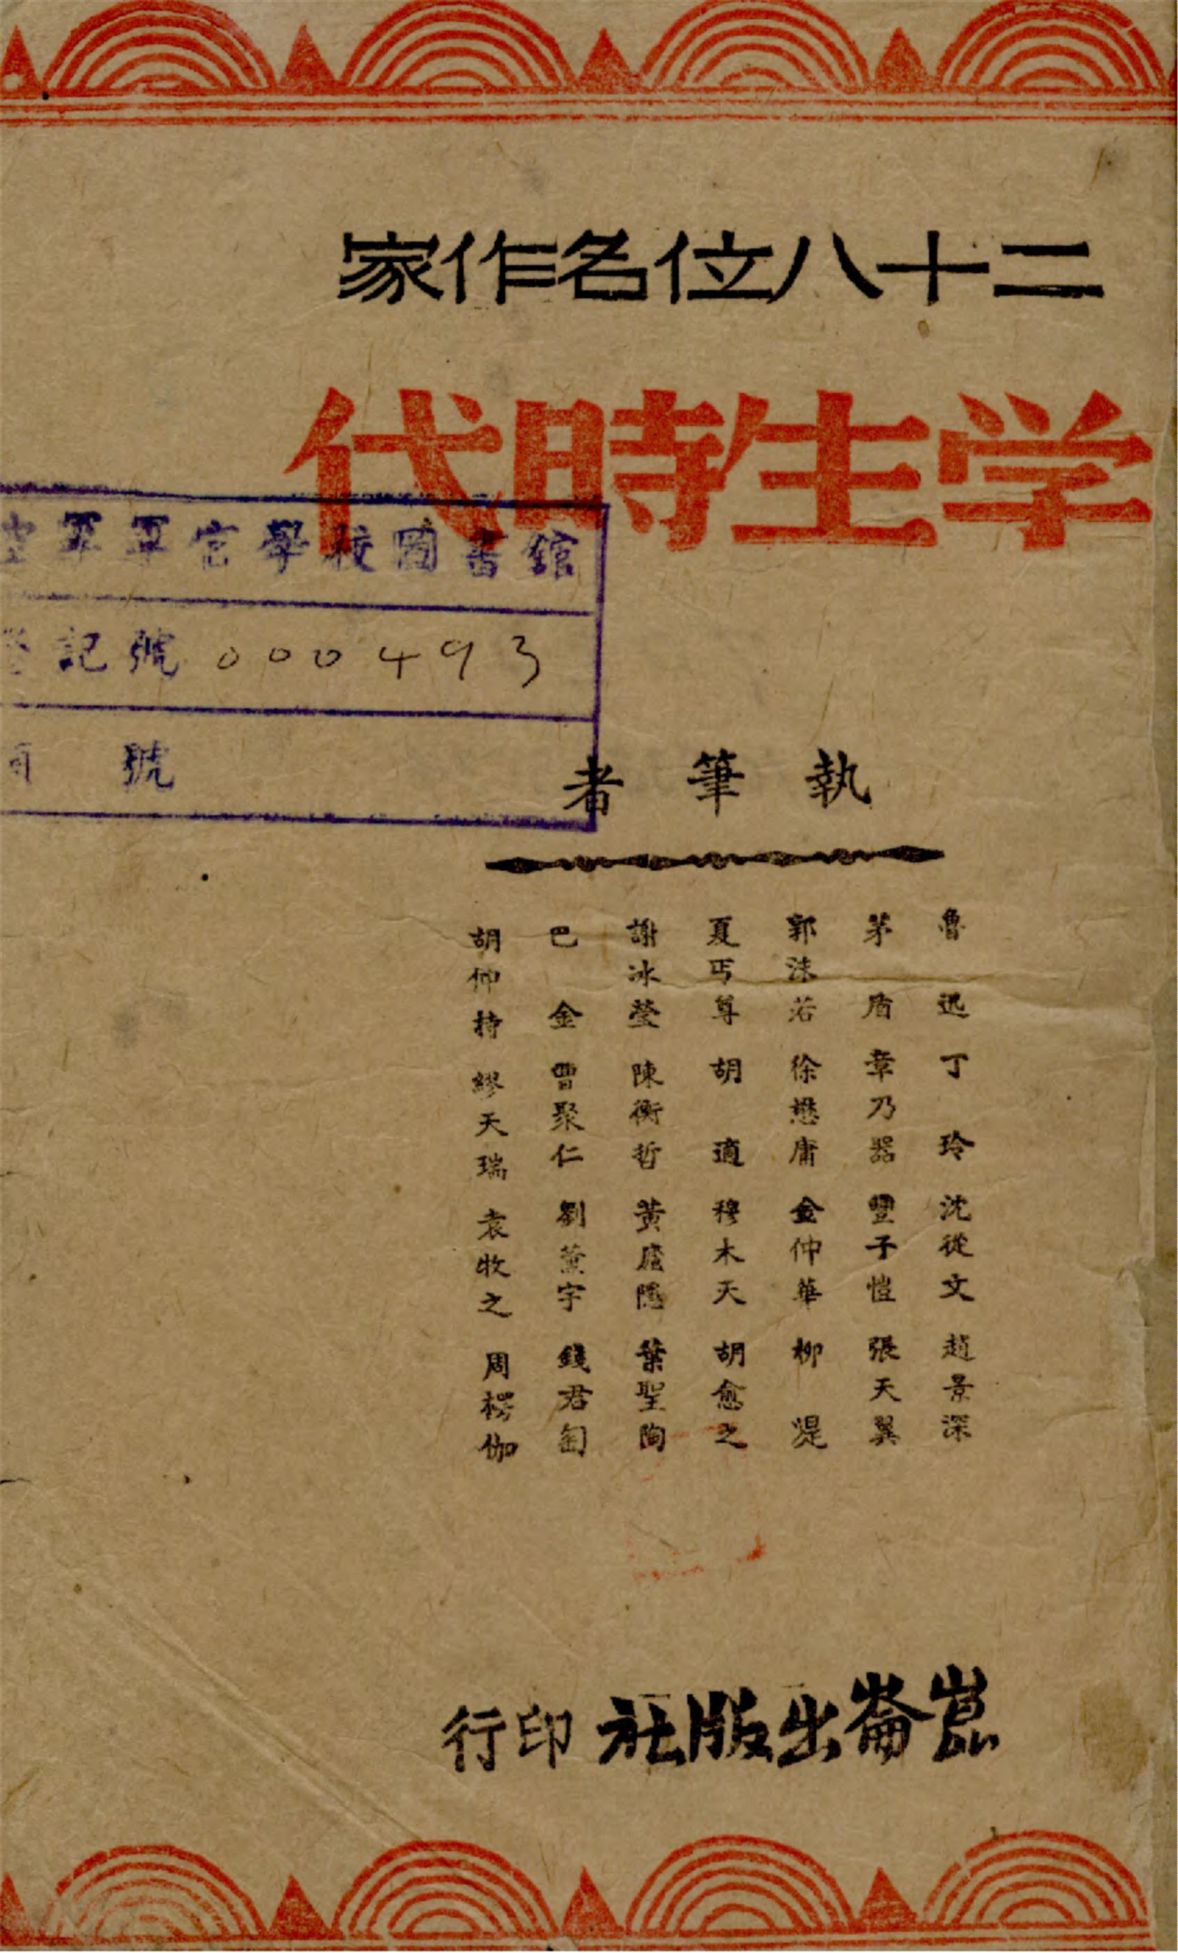 二十八位名作家
学生時代
空軍軍官學校圖書館
登記號 000493
類號
執筆者
魯迅 丁玲 沈從文 趙景深
茅盾 章乃器 豐子愷 張天翼
郭沫若 徐懋庸 金仲華 柳湜
夏丏尊 胡適 穆木天 胡愈之
謝冰瑩 陳衡哲 黃廬隱 葉聖陶
巴金 曹聚仁 劉薰宇 錢君匋
胡仲持 繆天瑞 袁牧之 周楞伽
崑崙出版社印行